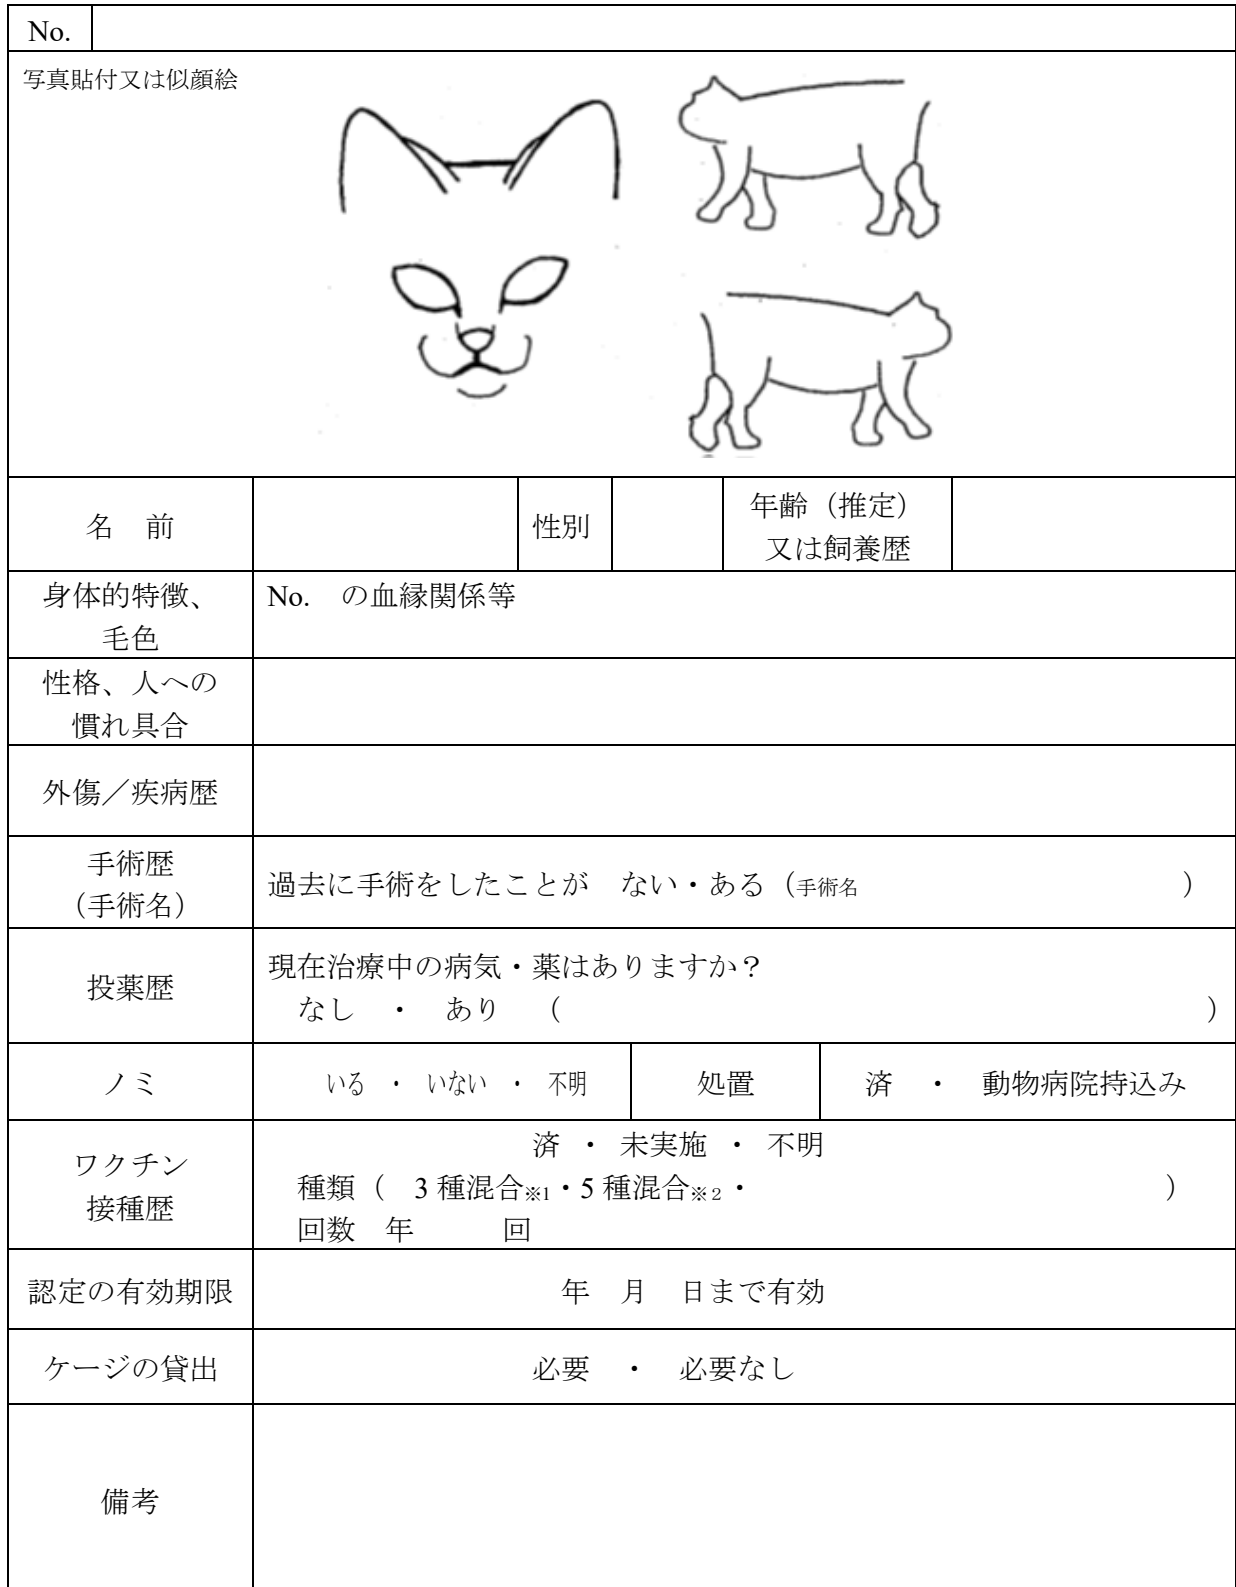 No.
写真貼付又は似顔絵
名　前
性別
年齢（推定）
又は飼養歴
身体的特徴、
毛色
No.　の血縁関係等
性格、人への
慣れ具合
外傷／疾病歴
手術歴
（手術名）
過去に手術をしたことが　ない・ある（手術名　　　　　　　　　　　）
投薬歴
現在治療中の病気・薬はありますか？
なし　・　あり　（　　　　　　　　　　　　　　　　　　　　　　）
ノミ
いる　・　いない　・　不明
処置
済　・　動物病院持込み
ワクチン
接種歴
済　・　未実施　・　不明
種類（　3 種混合※1・5 種混合※２・　　　　　　　　　　　　　　）
回数　年　　　回
認定の有効期限
年　月　日まで有効
ケージの貸出
必要　・　必要なし
備考